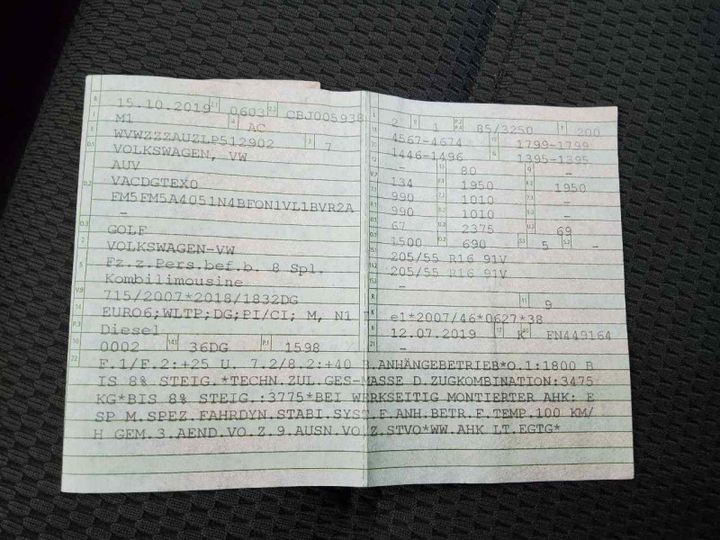 15.10.2019 0603 CBJ005938
M1 AC
WVWZZZAUZLP512902 7
VOLKSWAGEN, VW
AUV
VACDGTEX0
FM5FM5A4051N4BFON1VL1BVR2A
-
GOLF
VOLKSWAGEN-VW
Fz.z.Pers.bef.b. 8 Spl.
Kombilimousine
715/2007*2018/1832DG
EURO6;WLTP;DG;PI/CI; M, N1
Diesel
0002 36DG 1598
2 1 85/3250 200
4567-4674 1799-1799
1446-1496 1395-1395
- 80 -
134 1950 1950
990 1010 -
990 1010 -
67 2375 69
1500 690 5 -
205/55 R16 91V
205/55 R16 91V
-
9
e1*2007/46*0627*38
12.07.2019 K FN449164
F.1/F.2:+25 U. 7.2/8.2:+40 B.ANHÄNGEBETRIEB*O.1:1800 B
IS 8% STEIG.*TECHN.ZUL.GES-MASSE D.ZUGKOMBINATION:3475
KG*BIS 8% STEIG.:3775*BEI WERKSEITIG MONTIERTER AHK: E
SP M.SPEZ.FAHRDYN.STABI.SYST.F.ANH.BETR.F.TEMP.100 KM/
H GEM.3.AEND.VO.Z.9.AUSN.VO.Z.STVO*WW.AHK LT.EGTG*